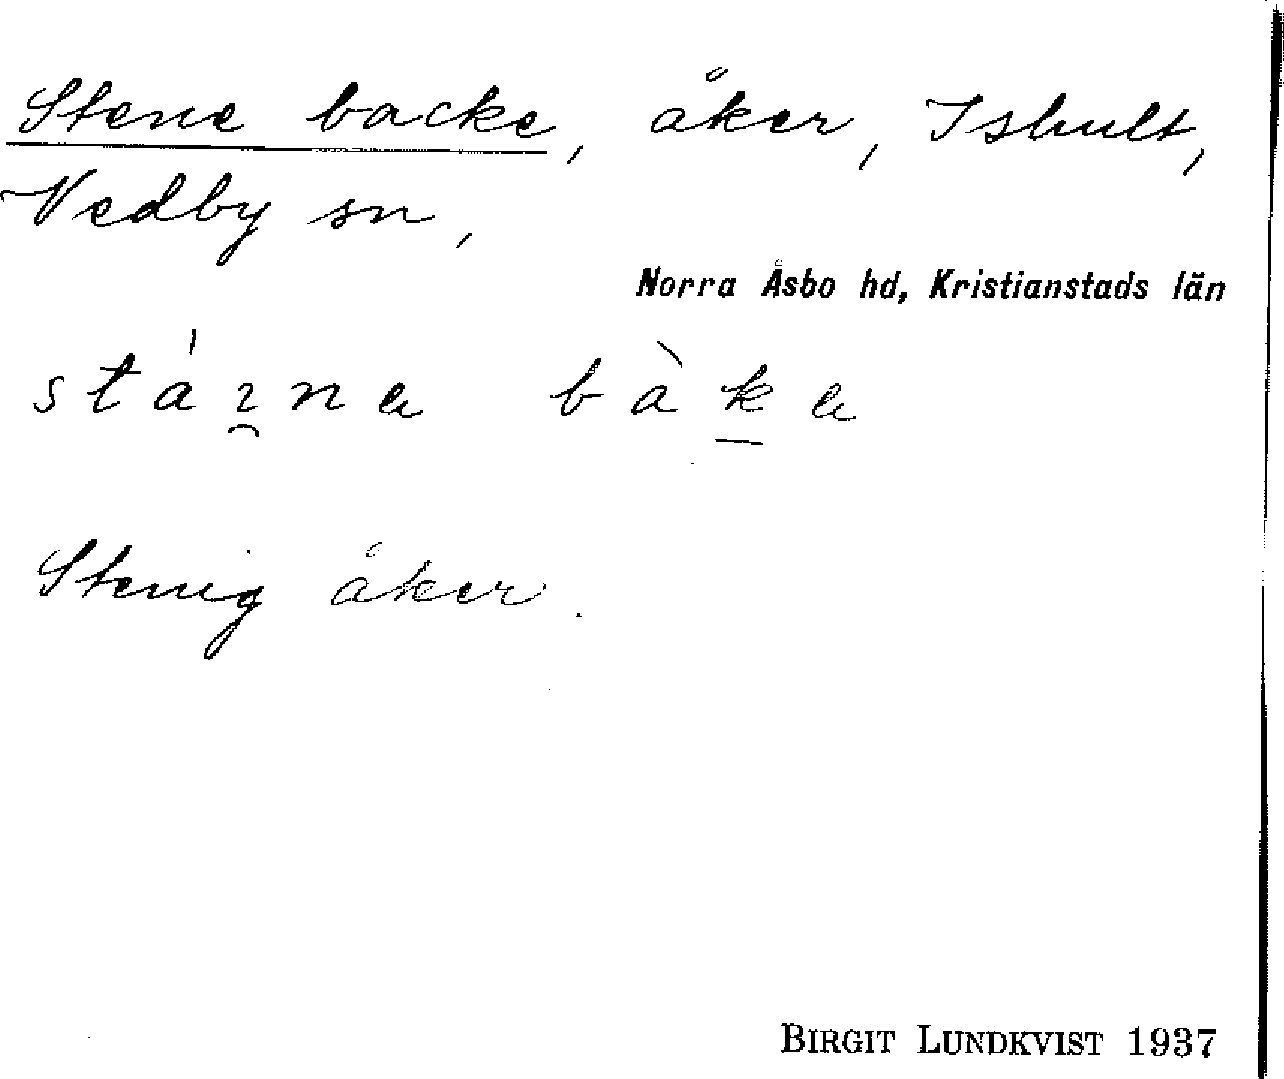 Stene backe, åker, Ishult,
Vedby sn,
Norra Åsbo hd, Kristianstads län
stáı̯na bàḵa
Stenig åker.
BIRGIT LUNDKVIST 1937